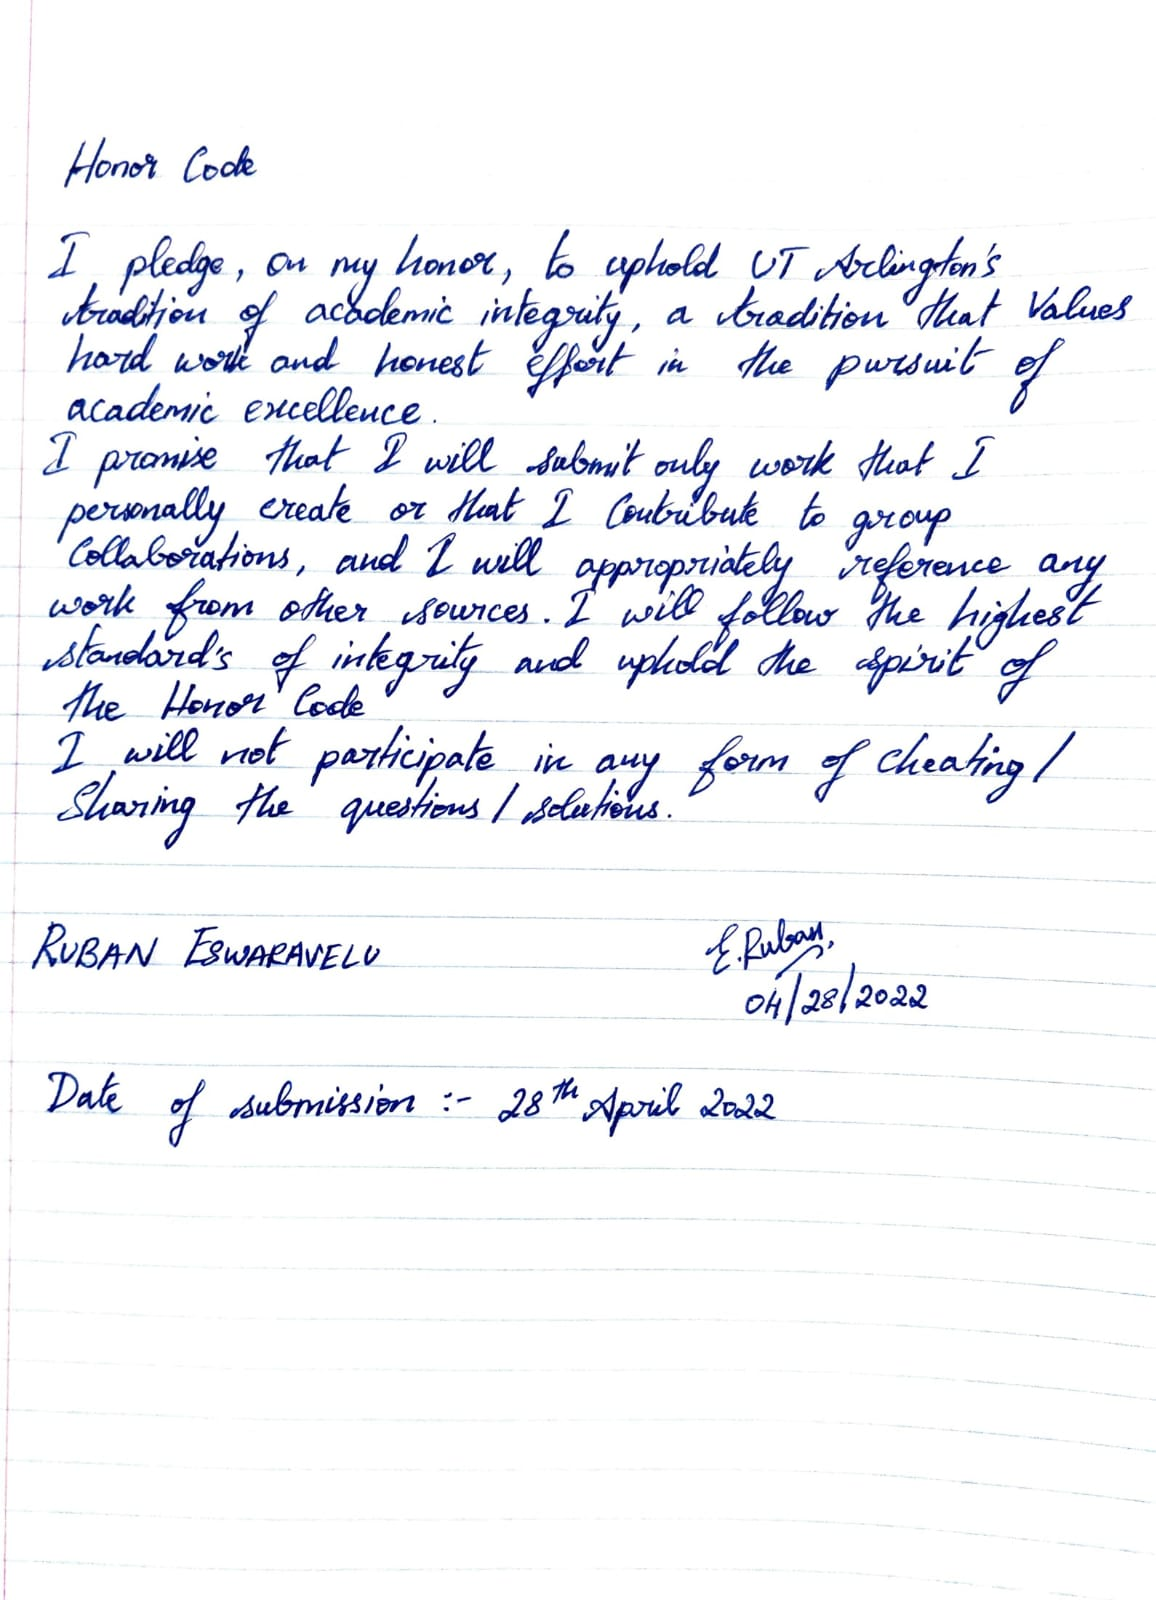 Honor Code
I pledge, on my honor, to uphold UT Arlington's
tradition of academic integrity, a tradition that Values
hard work and honest effort in the pursuit of
academic excellence.
I promise that I will submit only work that I
personally create or that I Contribute to group
Collaborations, and I will appropriately reference any
work from other sources. I will follow the highest
standard's of integrity and uphold the spirit of
the Honor Code
I will not participate in any form of Cheating/
Sharing the questions/solutions.
RUBAN ESWARAVELU
E.Ruban.
04/28/2022
Date of submission :- 28th April 2022